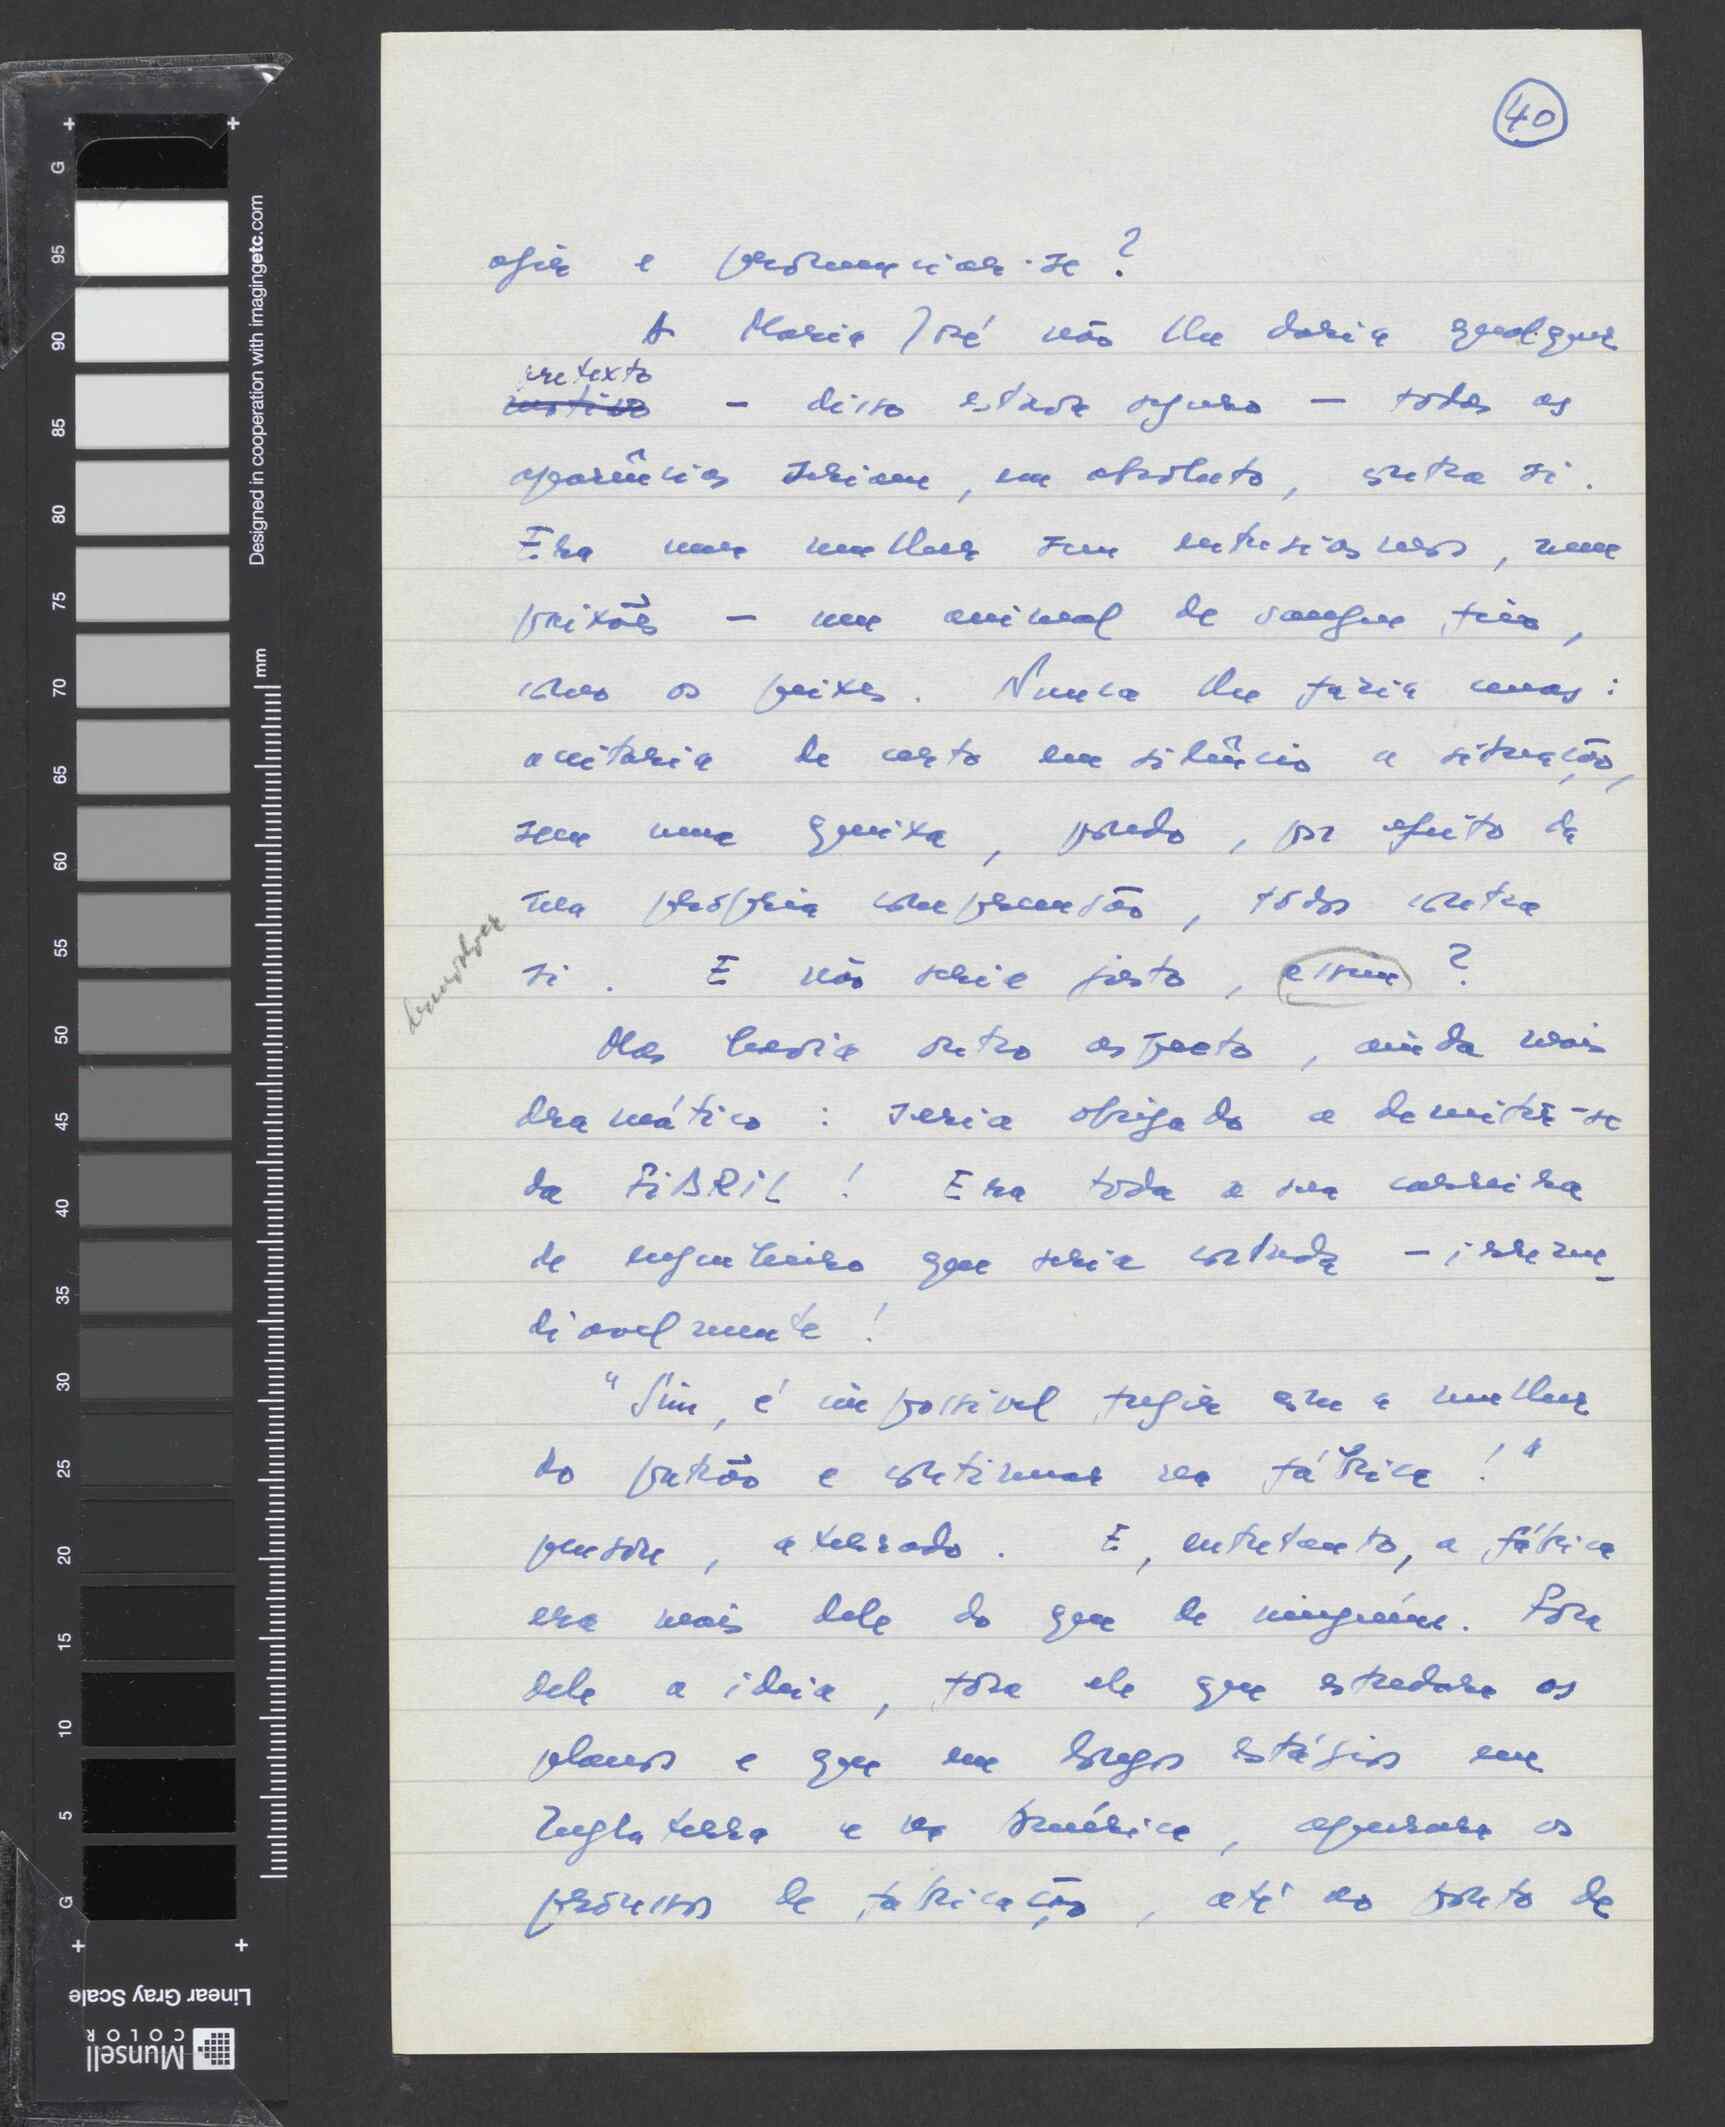 40
agir e pronunciar-se?
A Maria José não lhe daria qualquer
pretexto
motivo – disso estava seguro – todas as
aparências seriam, em absoluto, contra si.
Era uma mulher sem entusiasmos, sem
paixões – um animal de sangue frio,
como os peixes. Nunca lhe faria cenas:
aceitaria de certo em silêncio a situação,
sem uma queixa, pondo, por efeito da
sua própria compreensão, todos contra
si. E não seria justo, assim?
desenvolver
Mas havia outro aspecto, ainda mais
dramático: seria obrigado a demitir-se
da FiBRiL! Era toda a sua carreira
de engenheiro que seria cortada – irreme-
diavelmente!
"Sim, é impossivel fugir com a mulher
do patrão e continuar na fábrica!"
pensou, aterrado. E, entretanto, a fábrica
era mais dele do que de ninguém. Fora
dele a ideia, fora ele que estudara os
planos e que em longos estágios em
Inglaterra e na América, apurara os
processos de fabricação, até ao ponto de
Designed in cooperation with imagingetc.com
mm
G
95
90
85
80
75
70
65
60
55
50
45
40
35
30
25
20
15
10
5
G
Linear Gray Scale
Munsell
COLOR